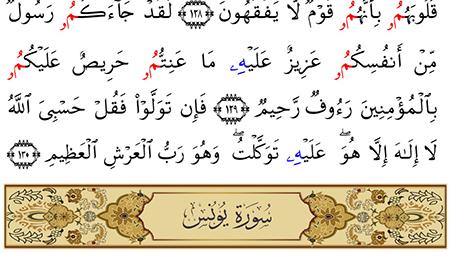 قُلُوبَهُمُۥ بِأَنَّهُمُۥ قَوْمٌ لَّا يَفْقَهُونَ ١٢٨ لَقَدْ جَآءَكُمُۥ رَسُولٌ
مِّنْ أَنفُسِكُمُۥ عَزِيزٌ عَلَيْهِۦ مَا عَنِتُّمُۥ حَرِيصٌ عَلَيْكُمُۥ
بِٱلْمُؤْمِنِينَ رَءُوفٌ رَّحِيمٌ ١٢٩ فَإِن تَوَلَّوْا۟ فَقُلْ حَسْبِىَ ٱللَّهُ
لَآ إِلَـٰهَ إِلَّا هُوَۖ عَلَيْهِۦ تَوَكَّلْتُۖ وَهُوَ رَبُّ ٱلْعَرْشِ ٱلْعَظِيمِ ١٣٠
سُورَةُ يُونُسَ